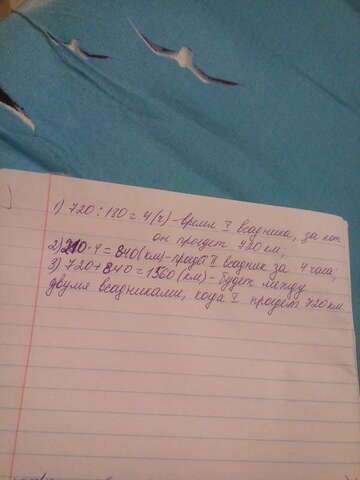 1) 720 : 180 = 4 (ч) - время I всадника, за кот.
он проедет 720 км;
2) 210 · 4 = 840 (км) - проедт II всадник за 4 часа;
3) 720 + 840 = 1560 (км) - будет между
двумя всадниками, когда I проедет 720 км.